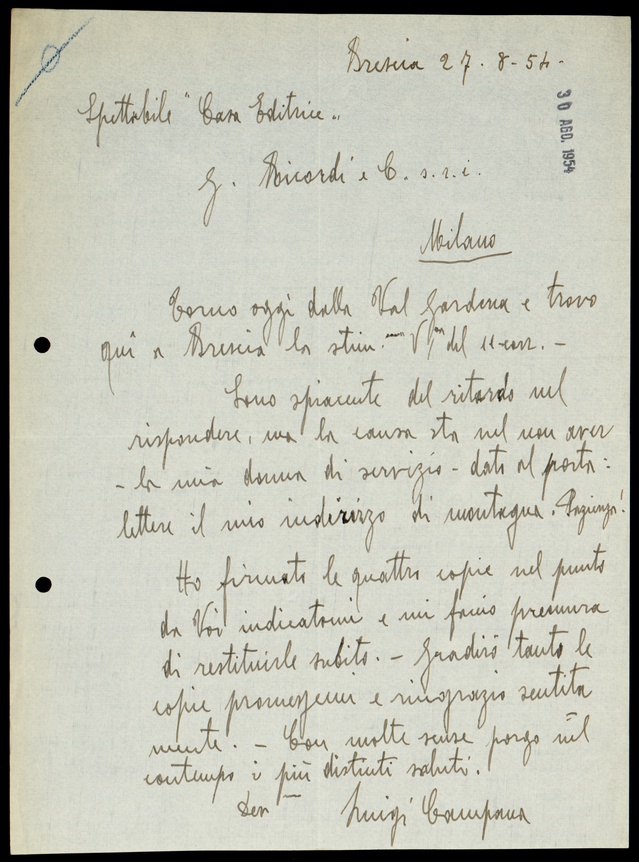 Brescia 27-8-54-
Spettabile "Casa Editrice"
30 AGO. 1954
G. Ricordi e C. s.r.l.
Milano
Torno oggi dalla Val Gardena e trovo
qui a Brescia la stim. del 11 corr. -
Sono spiacente del ritardo nel
rispondere, ma la causa sta nel non aver
- la mia donna di servizio - dato al porta=
lettere il mio indirizzo di montagna. Pazienza!
Ho firmato le quattro copie nel punto
da Voi indicatomi e mi faccio premura
di restituirle subito. - Gradirò tanto le
copie promessemi e ringrazio sentita
mente. - Con molte scuse porgo nel
contempo i più distinti saluti.
Dev mo Luigi Campana